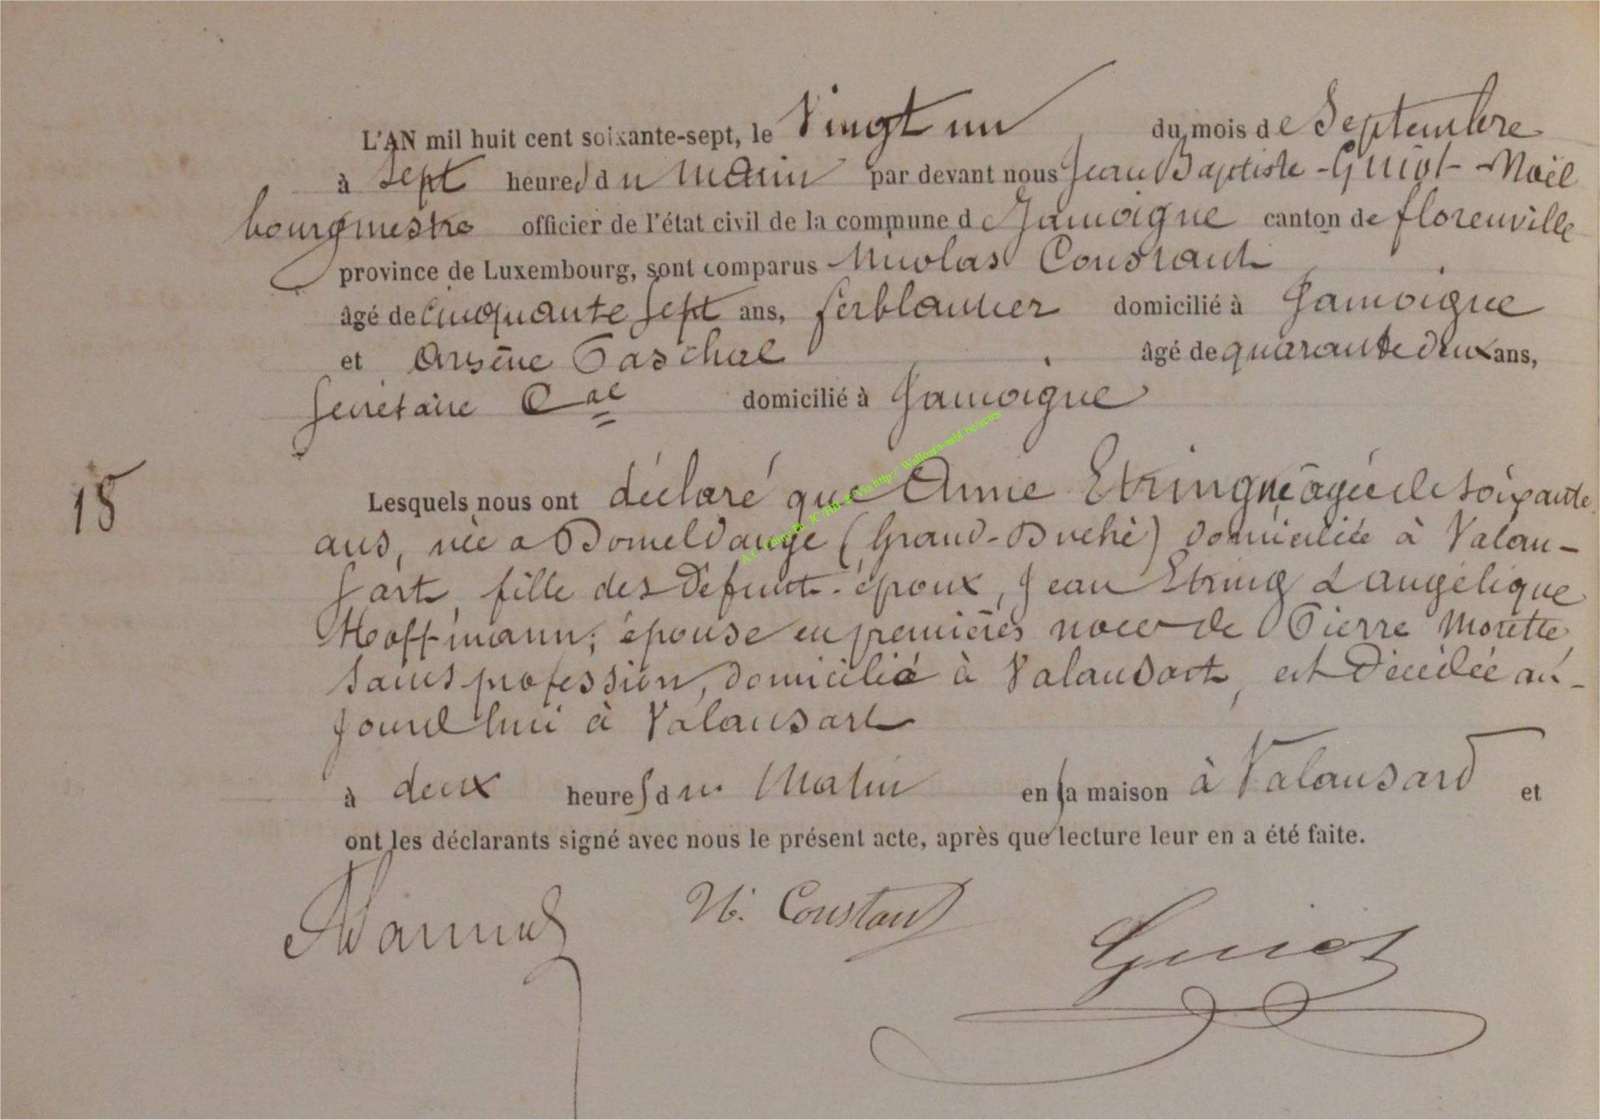 L'AN mil huit cent soixante-sept, le Vingt un du mois de Septembre
à sept heures du matin par devant nous Jean Baptiste-Guiot-Noël
bourgmestre officier de l'état civil de la commune d Jamoigne canton de florenville
province de Luxembourg, sont comparus Nicolas Constant
âgé de cinquante sept ans, ferblantier domicilié à Jamoigne
et Arsène Paschal âgé de quarante deux ans,
Secrétaire Cal domicilié à Jamoigne
18
Lesquels nous ont déclaré que Anne Etringne âgée de soixante
ans, née a Domeldange (Grand-Duché) domiciliée à Valan-
sart, fille des défunt époux, Jean Etring & angélique
Hoffmann, épouse en premières noces de Pierre Morette
sans profession, domicilié à Valansart, est décédée au-
jourd'hui à Valansart
à deux heures du Matin en sa maison à Valansard et
ont les déclarants signé avec nous le présent acte, après que lecture leur en a été faite.
N. Constant
Guiot